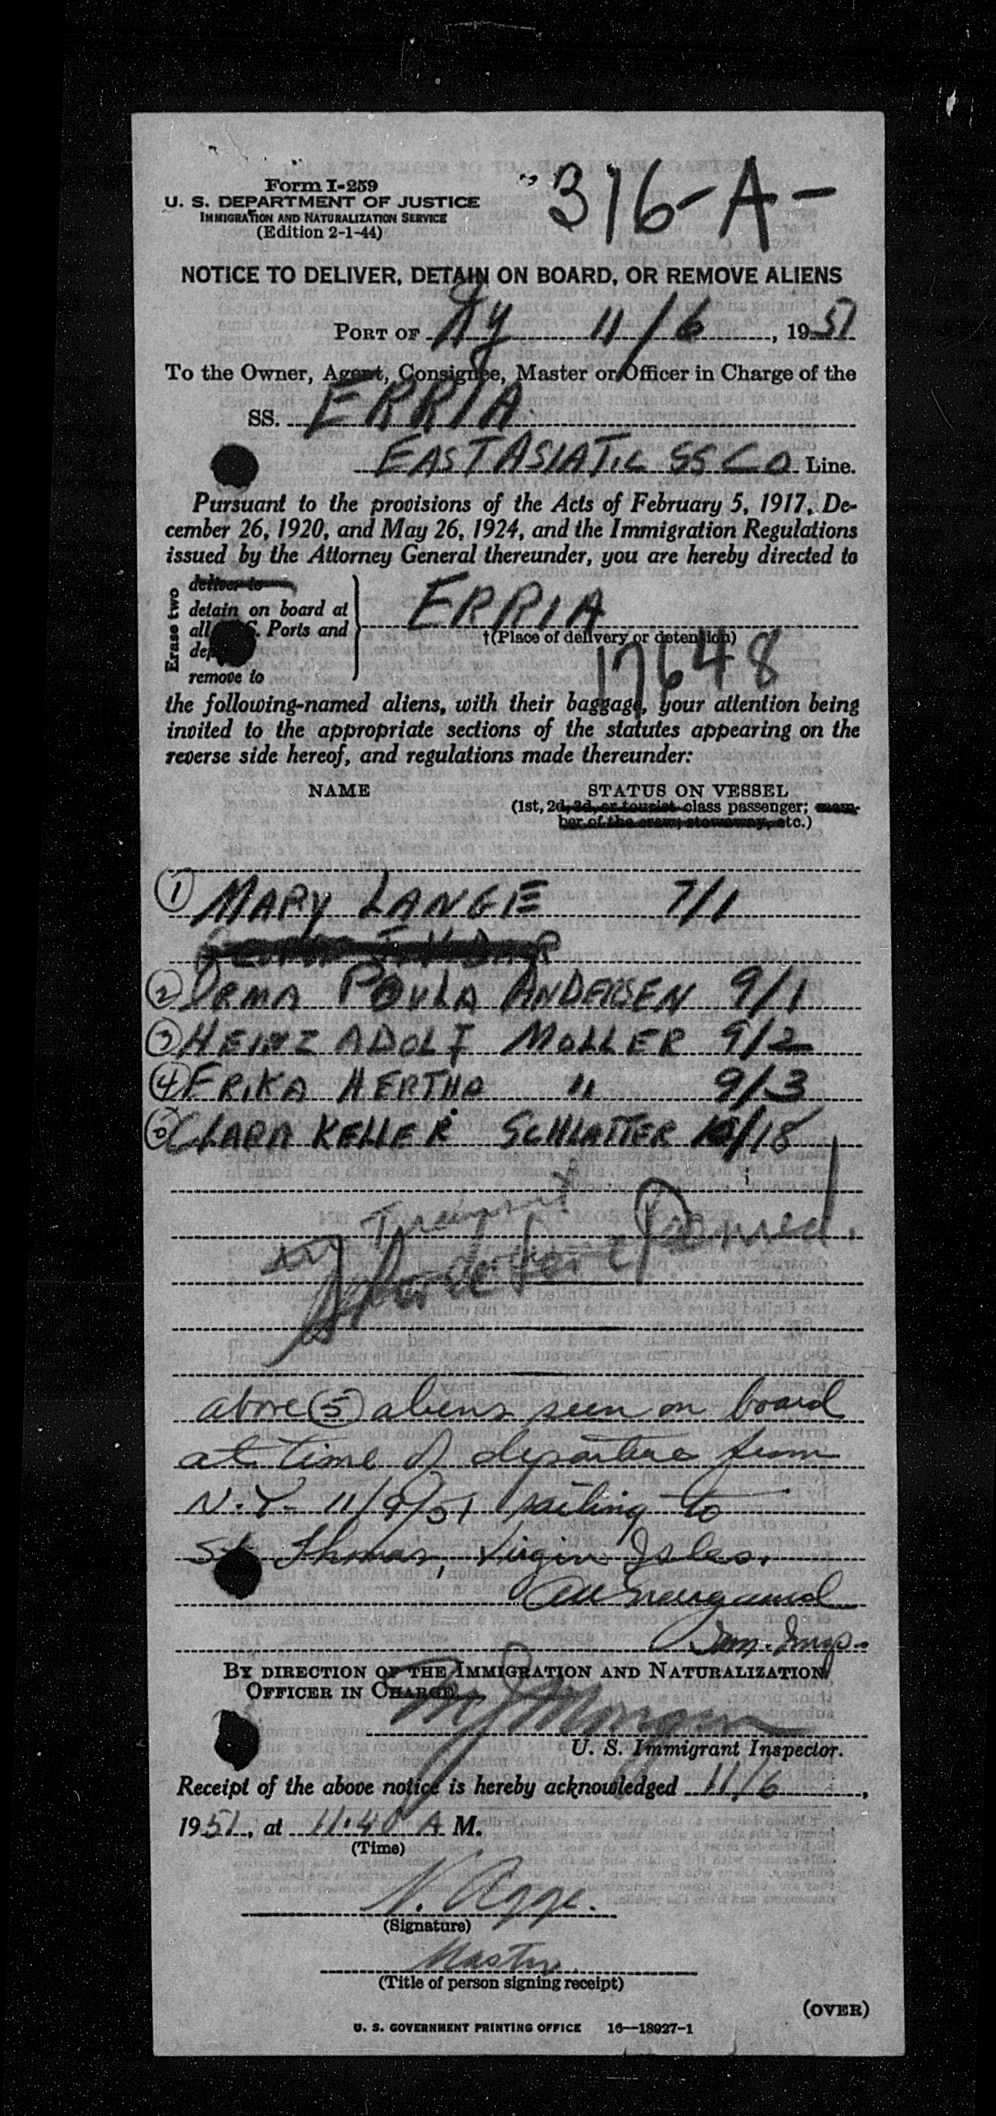 Form I-259
316-A-
U. S. DEPARTMENT OF JUSTICE
IMMIGRATION AND NATURALIZATION SERVICE
(Edition 2-1-44)
NOTICE TO DELIVER, DETAIN ON BOARD, OR REMOVE ALIENS
PORT OF NY 11/6, 1951
To the Owner, Agent, Consignee, Master or Officer in Charge of the
SS. ERRIA
EAST ASIATIC SS CO Line.
Pursuant to the provisions of the Acts of February 5, 1917, De-
cember 26, 1920, and May 26, 1924, and the Immigration Regulations
issued by the Attorney General thereunder, you are hereby directed to
Erase two
deliver to
detain on board at
all Ports and
remove to
ERRIA
†(Place of delivery or detention)
17648
the following-named aliens, with their baggage, your attention being
invited to the appropriate sections of the statutes appearing on the
reverse side hereof, and regulations made thereunder:
NAME STATUS ON VESSEL
(1st, 2d, 3d, or tourist class passenger; mem-
ber of the crew; stowaway, etc.)
1 MARY LANGE 7/1
2 IRMA POULA ANDERSEN 9/1
3 HEINZ ADOLF MOLLER 9/2
4 ERIKA HERTHA " 9/3
5 CLARA KELLER SCHLATTER 10/18
Transit
above 5 aliens seen on board
at time of departure from
N.Y. 11/9/51 sailing to
St Thomas, Virgin Isles.
Imm. Insp.
BY DIRECTION OF THE IMMIGRATION AND NATURALIZATION
OFFICER IN CHARGE.
M J Morgan
U. S. Immigrant Inspector.
Receipt of the above notice is hereby acknowledged 11/6,
1951, at 11.40 A M.
(Time)
N. Agge.
(Signature)
Master.
(Title of person signing receipt)
(OVER)
U. S. GOVERNMENT PRINTING OFFICE 16—18927-1